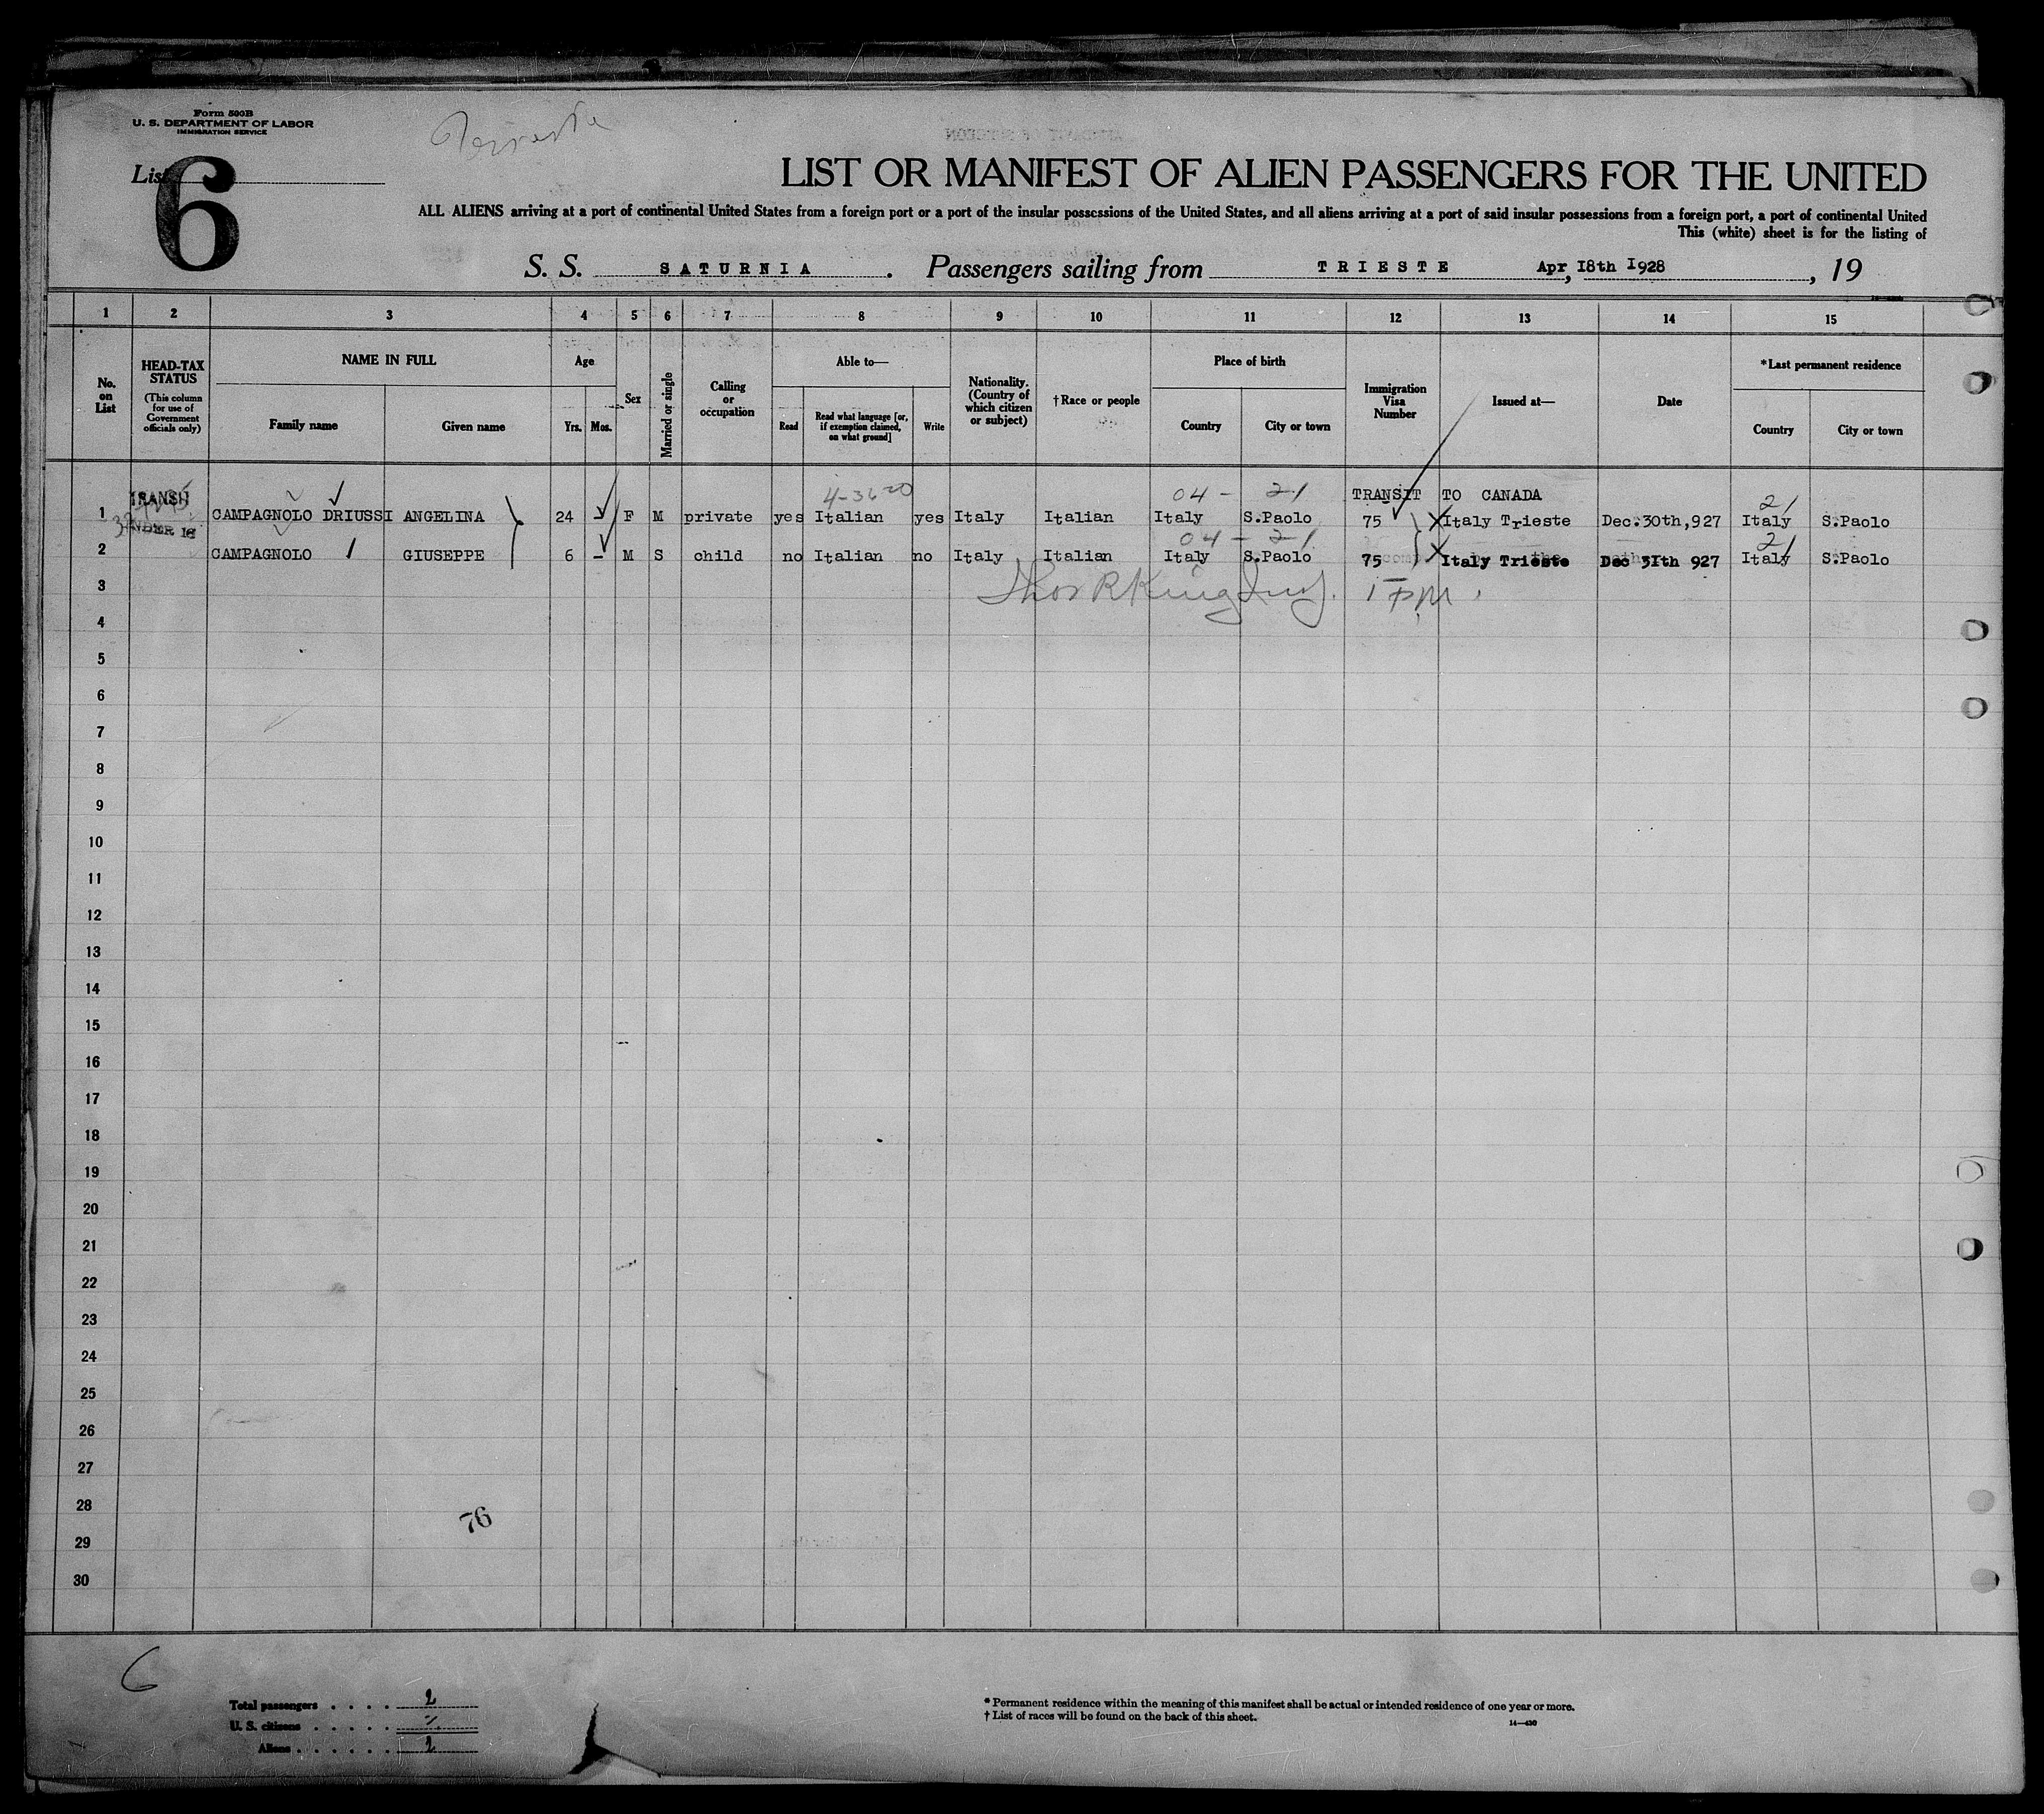 Form 500B
U. S. DEPARTMENT OF LABOR
IMMIGRATION SERVICE
Trieste
List 6
LIST OR MANIFEST OF ALIEN PASSENGERS FOR THE UNITED
ALL ALIENS arriving at a port of continental United States from a foreign port or a port of the insular possessions of the United States, and all aliens arriving at a port of said insular possessions from a foreign port, a port of continental United
This (white) sheet is for the listing of
S. S. SATURNIA . Passengers sailing from TRIESTE Apr, 18th 1928, 19
1 2 3 4 5 6 7 8 9 10 11 12 13 14 15
No. on List
HEAD-TAX STATUS
(This column for use of Government officials only)
NAME IN FULL
Family name Given name
Age
Yrs. Mos.
Sex
Married or single
Calling or occupation
Able to—
Read
Read what language [or, if exemption claimed, on what ground]
Write
Nationality. (Country of which citizen or subject)
†Race or people
Place of birth
Country City or town
Immigration Visa Number
Issued at—
Date
*Last permanent residence
Country City or town
TRANSIT 04 - 21 TRANSIT TO CANADA 21
1 CAMPAGNOLO DRIUSSI ANGELINA 24 F M private yes Italian yes Italy Italian Italy S.Paolo 75 Italy Trieste Dec.30th,927 Italy S.Paolo
04 - 21 21
2 CAMPAGNOLO GIUSEPPE 6 - M S child no Italian no Italy Italian Italy S.Paolo 75 Italy Trieste Dec 31th 927 Italy S.Paolo
3
4
5
6
7
8
9
10
11
12
13
14
15
16
17
18
19
20
21
22
23
24
25
26
27
28
76
29
30
6
Total passengers . . . . 2
U. S. citizens . . . . .
Aliens . . . . . . 2
* Permanent residence within the meaning of this manifest shall be actual or intended residence of one year or more.
† List of races will be found on the back of this sheet.
14—430